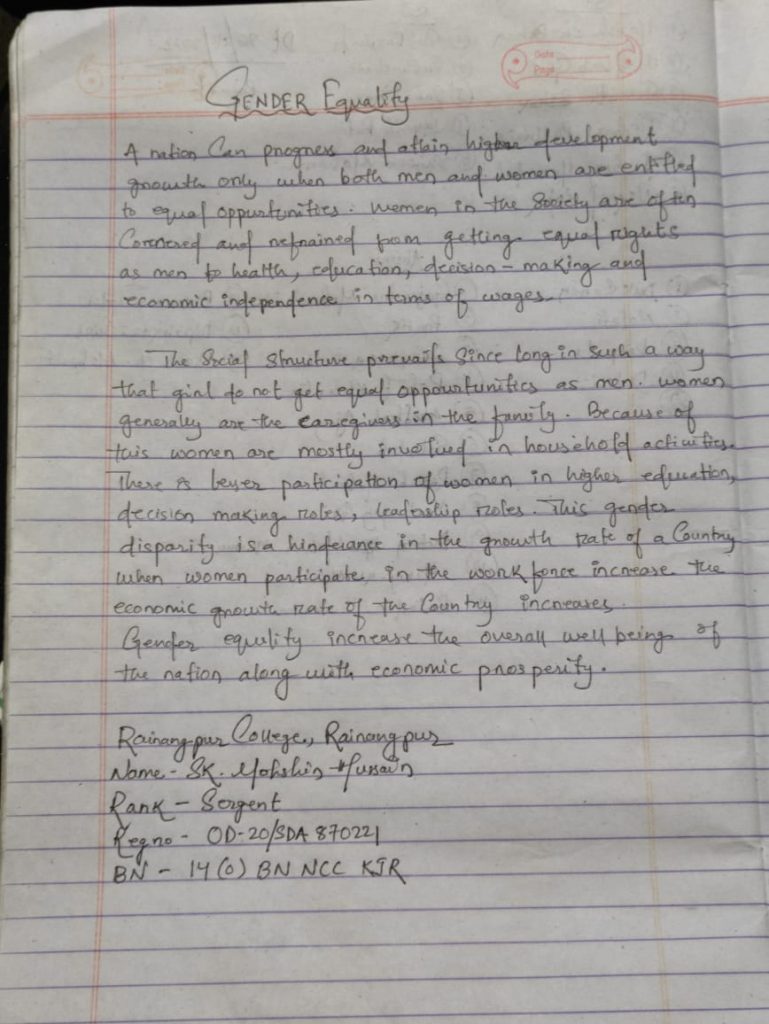 Date
Page
GENDER Equality
A nation Can progress and attain higher development
growth only when both men and women are entitled
to equal oppurtunities. Women in the Society are often
Cornered and refrained from getting equal rights
as men to health, education, decision - making and
economic independence in terms of wages.
The Social Structure prevails Since long in such a way
that girl do not get equal oppourtunities as men. women
generally are the caregivers in the family. Because of
this women are mostly involved in household activities.
There is lesser participation of women in higher education,
decision making roles, leadership roles. This gender
disparity is a hinderance in the growth rate of a Country
when women participate in the work force increase the
economic growth rate of the Country increases.
Gender equility increase the overall well being of
the nation along with economic prosperity.
Rairangpur College, Rairangpur
Name - SK. Mohshin Hussain
Rank - Sergent
Reg no - OD-20/SDA 870221
BN - 14 (O) BN NCC KJR